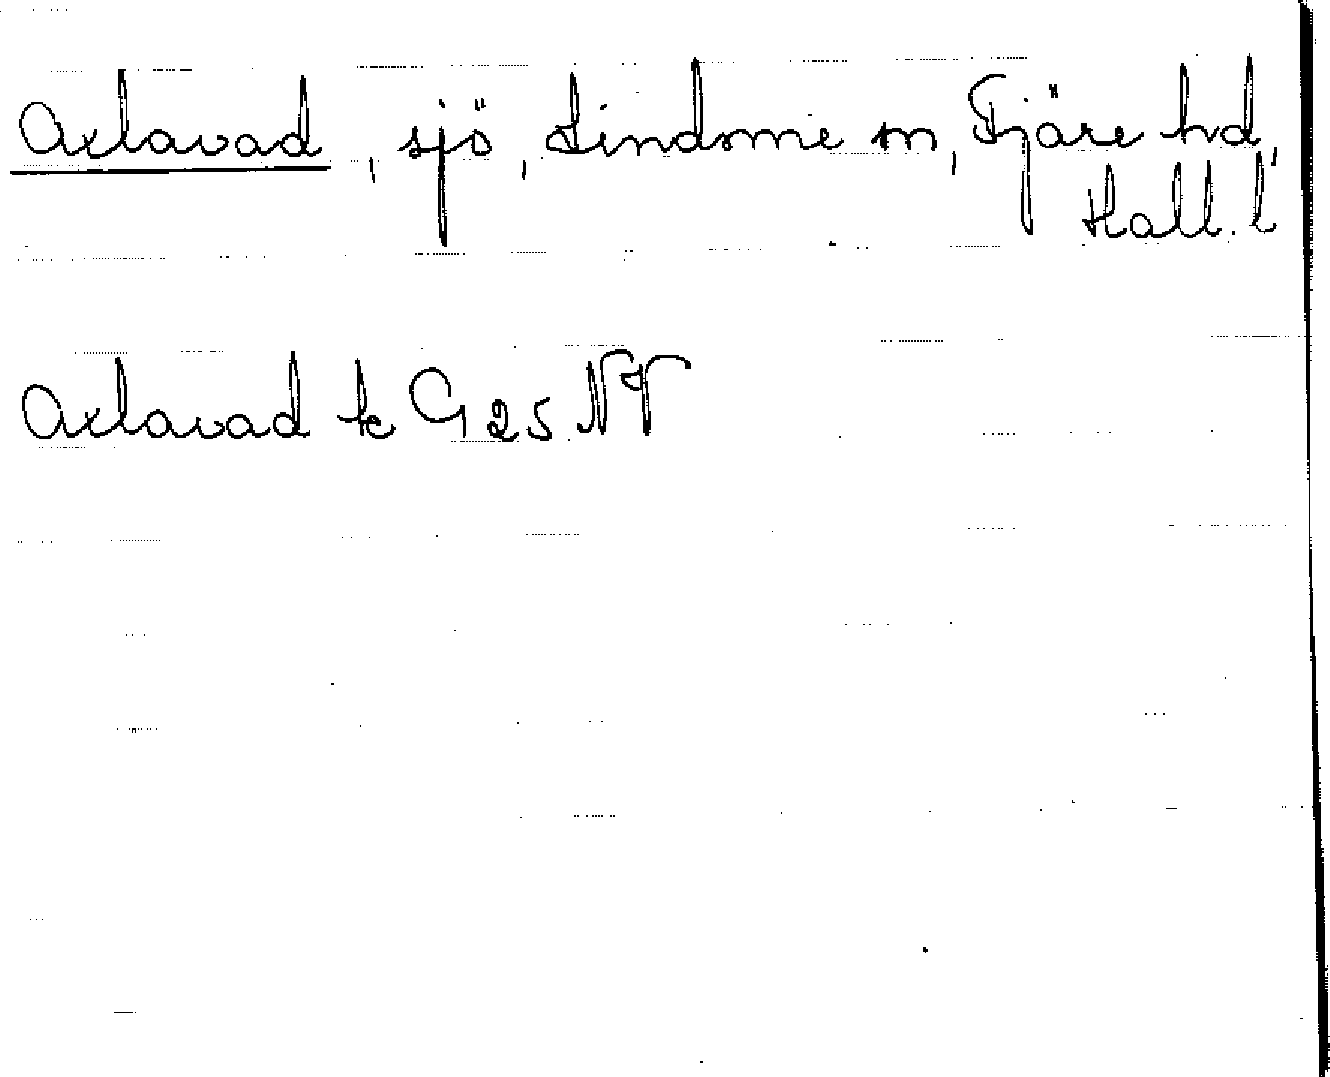 Axlavad, sjö, Lindome sn, Fjäre hd,
Hall. l
Axlavad tc G 25 NV